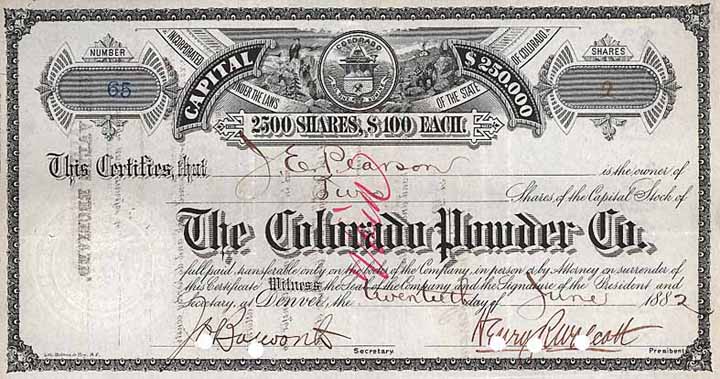 NUMBER
65
INCORPORATED
UNDER THE LAWS
OF THE STATE
OF COLORADO
CAPITAL
COLORADO
$250,000
SHARES
2
2500 SHARES, $100 EACH.
This Certifies, that J. E. Pearson is the owner of
Two Shares, of the Capital Stock of
The Colorado Powder Co.
full paid, transferable only on the books of the Company, in person or by Attorney on surrender of
this Certificate Witness the Seal of the Company and the Signature of the President and
Secretary, at Denver, the twentieth day of June 1882
Secretary.
Henry
President